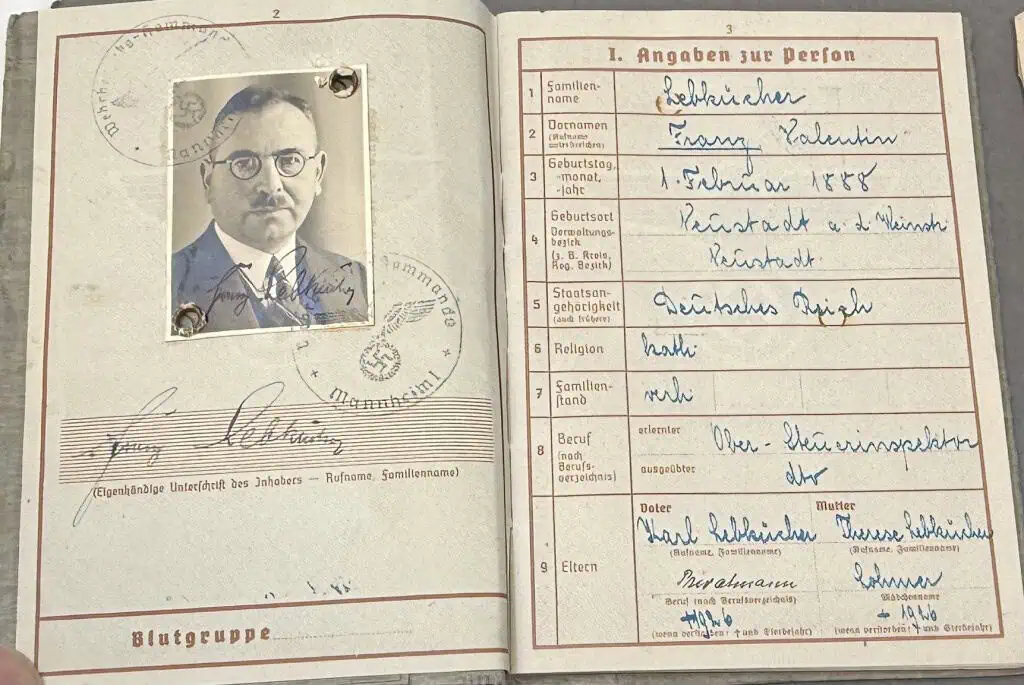 2
Mannheim 1
Franz Lebkücher
Franz Lebkücher
(Eigenhändige Unterschrift des Inhabers — Rufname, Familienname)
Blutgruppe
3
I. Angaben zur Person
1 Familien-
name
Lebkücher
2 Vornamen
(Rufname
unterstreichen)
Franz Valentin
3 Geburtstag,
-monat,
-jahr
1. Februar 1888
4 Geburtsort
Verwaltungs-
bezirk
(z. B. Kreis,
Reg. Bezirk)
Neustadt a. d. Weinstr.
Neustadt
5 Staatsan-
gehörigkeit
(auch frühere)
Deutsches Reich
6 Religion
kath
7 Familien-
stand
verh
8 Beruf
(nach
Berufs-
verzeichnis)
erlernter
Ober-Steuerinspektor
ausgeübter
dto
9 Eltern
Vater
Mutter
Karl Lebkücher
Therese Lebkücher
(Rufname, Familienname)
(Rufname, Familienname)
Privatmann
Lohmer
Beruf (nach Berufsverzeichnis)
Mädchenname
+1926
+ 1926
(wenn verstorben: † und Sterbejahr)
(wenn verstorben: † und Sterbejahr)